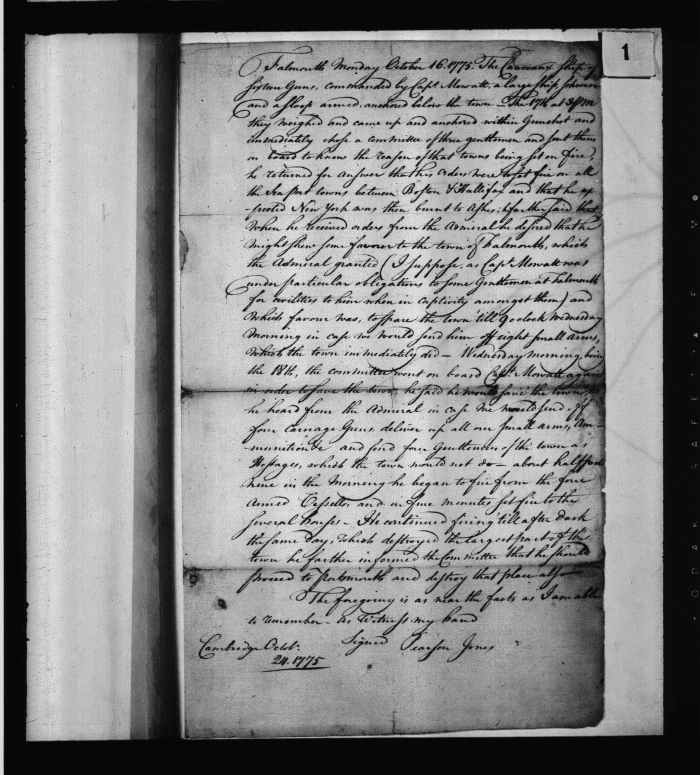 1
Falmouth Monday October 16. 1775. The Canceaux Ship of
sixteen Guns, commanded by Capt Mowatt, a large ship, schooner
and a sloop armed, anchored below the town. The 17th at 3 PM
they weighed and came up and anchored within Gunshot and
immediately chose a committee of three gentlemen and sent them
on board to know the reason of that towns being set on fire,
he returned for answer that his Orders were to set fire on all
the Sea port towns between Boston & Hallifax and that he ex
-pected New York was then burnt to Ashes; he farther said that
when he received orders from the Admiral he desired that he
might shew some favour to the town of Falmouth, which
the Admiral granted (I suppose, as Capt Mowatt was
under particular obligations to some Gentlemen at Falmouth
for civilities to him when in captivity amongst them) and
which favour was, to spare the town till 9 oclock Wednesday
Morning in case we would send him off eight small arms,
which the town immediately did – Wednesday morning being
the 18th, the committee went on board Capt. Mowatt again
in order to save the town, he said he would save the town till
he heard from the Admiral in case we would send off
four carriage Guns deliver up all our small arms, Am-
-munition &c and send four Gentlemen of the town as
Hostages, which the town would not do – about half past
nine in the Morning he began to fire from the four
Armed Vessells and in five minutes set fire to the
several houses – He continued firing till after Dark
the same Day, which destroyed the largest part of the
town he farther informed the Committee that he should
proceed to Portsmouth and destroy that place also –
The foregoing is as near the facts as I am able
to remember – As Witness my hand
Signed Pearson Jones
Cambridge Octobr.
24. 1775
SAFETY